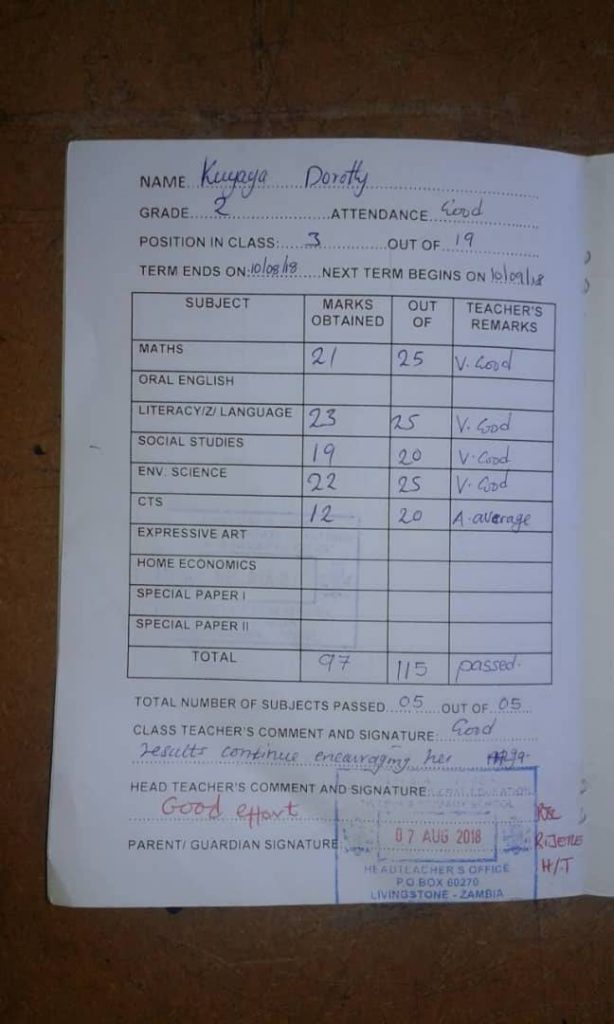 NAME Kuyaya Dorothy
GRADE 2 ATTENDANCE Good
POSITION IN CLASS: 3 OUT OF 19
TERM ENDS ON: 10/08/18 NEXT TERM BEGINS ON 10/09/18
SUBJECT MARKS OBTAINED OUT OF TEACHER'S REMARKS
MATHS 21 25 V. Good
ORAL ENGLISH
LITERACY/Z/ LANGUAGE 23 25 V. Good
SOCIAL STUDIES 19 20 V. Good
ENV. SCIENCE 22 25 V. Good
CTS 12 20 A. average
EXPRESSIVE ART
HOME ECONOMICS
SPECIAL PAPER I
SPECIAL PAPER II
TOTAL 97 115 passed.
TOTAL NUMBER OF SUBJECTS PASSED 05 OUT OF 05
CLASS TEACHER'S COMMENT AND SIGNATURE: Good
results continue encouraging her
HEAD TEACHER'S COMMENT AND SIGNATURE
Good effort
PARENT/ GUARDIAN SIGNATURE:
EDUCATION
PRIMARY SCHOOL
07 AUG 2018
HEADTEACHER'S OFFICE
P.O BOX 60270
LIVINGSTONE - ZAMBIA
H/T